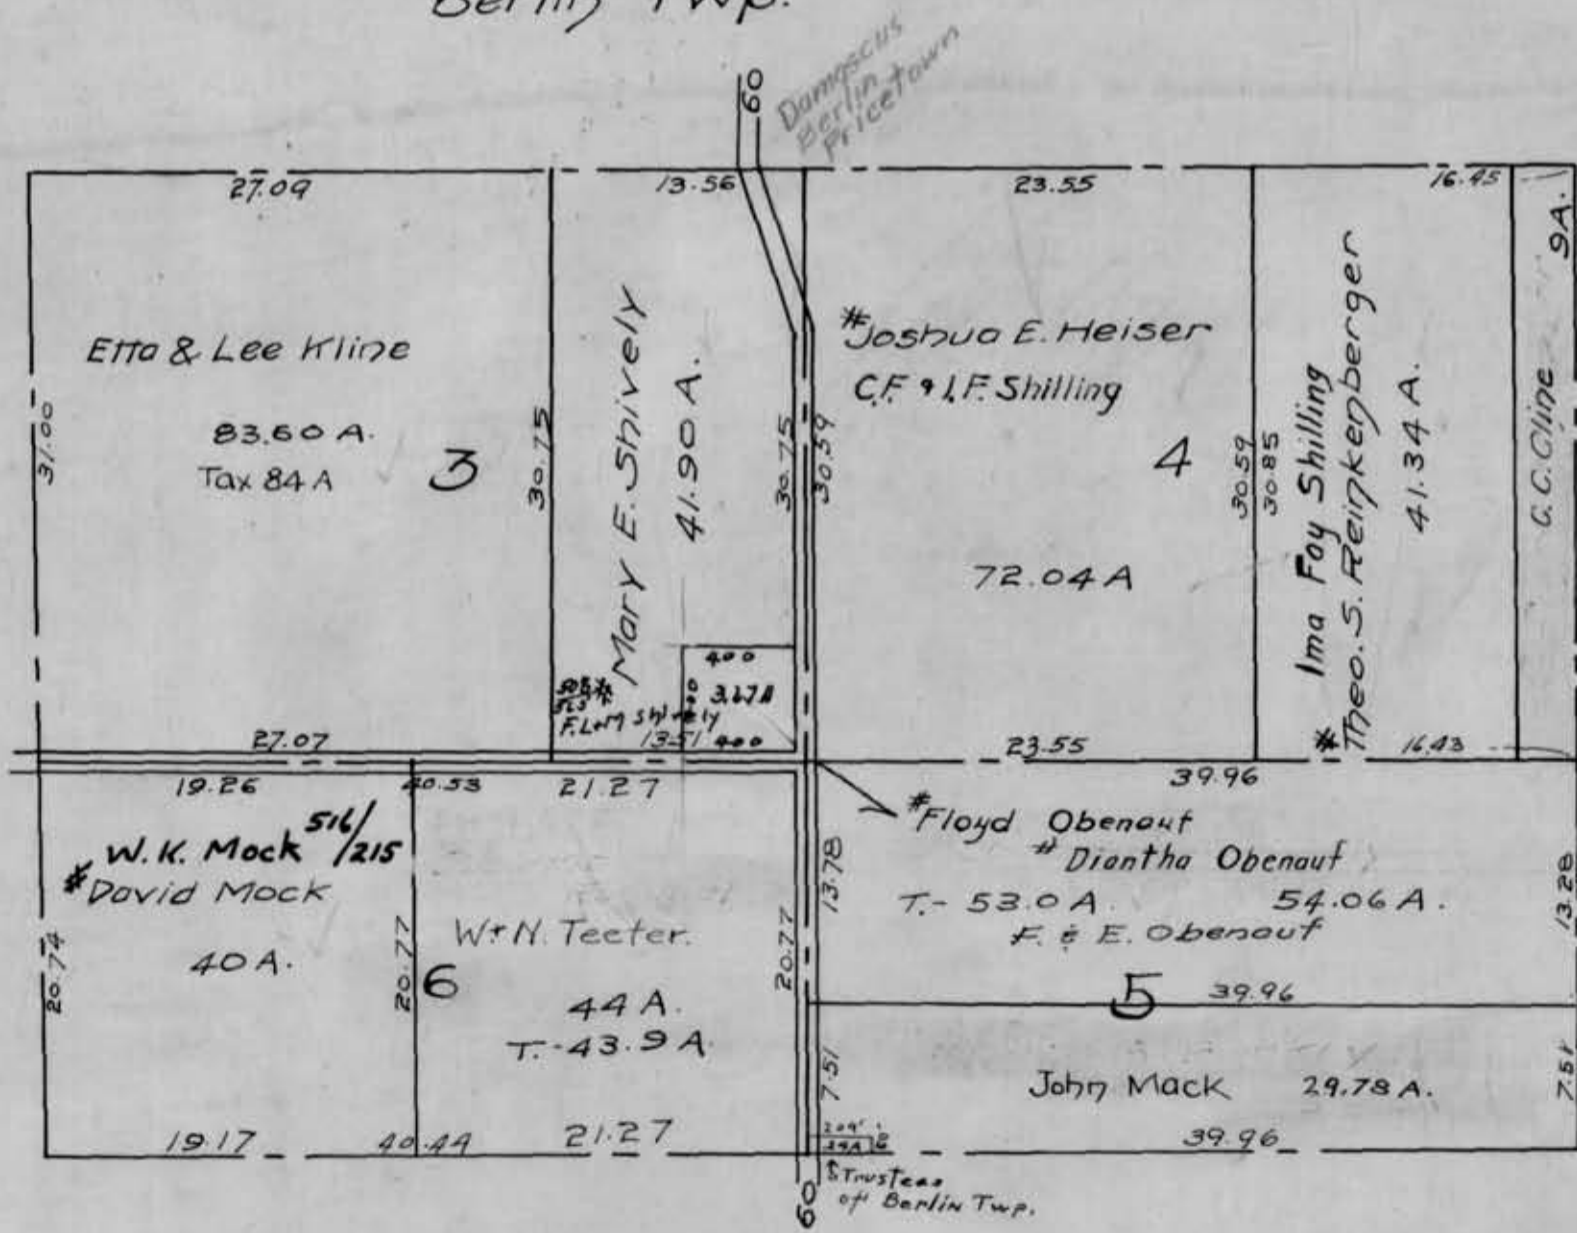 Berlin Twp.
60
Damascus
Berlin
Pricetown
27.09
13.56
23.55
16.45
9A.
Etta & Lee Kline
83.60 A.
Tax 84 A
3
31.00
30.75
Mary E. Shively
41.90 A.
30.75
30.59
#Joshua E. Heiser
C.F. & I.F. Shilling
4
72.04 A
30.59
30.85
Ima Foy Shilling
#Theo. S. Reinkenberger
41.34 A.
C.C. Cline
400
3.67 A
F.L. & M Shively
400
27.07
13.51
23.55
16.43
19.26
40.53
21.27
39.96
W.K. Mock 516/215
#David Mock
40 A.
20.74
20.77
6
W. & N. Teeter.
44 A.
T.-43.9 A.
20.77
13.78
#Floyd Obenauf
# Diantha Obenauf
T.- 53.0 A. 54.06 A.
F. & E. Obenauf
13.28
5
39.96
7.51
John Mack 29.78 A.
7.51
19.17
40.44
21.27
209'
39.96
Trustees
of Berlin Twp.
60